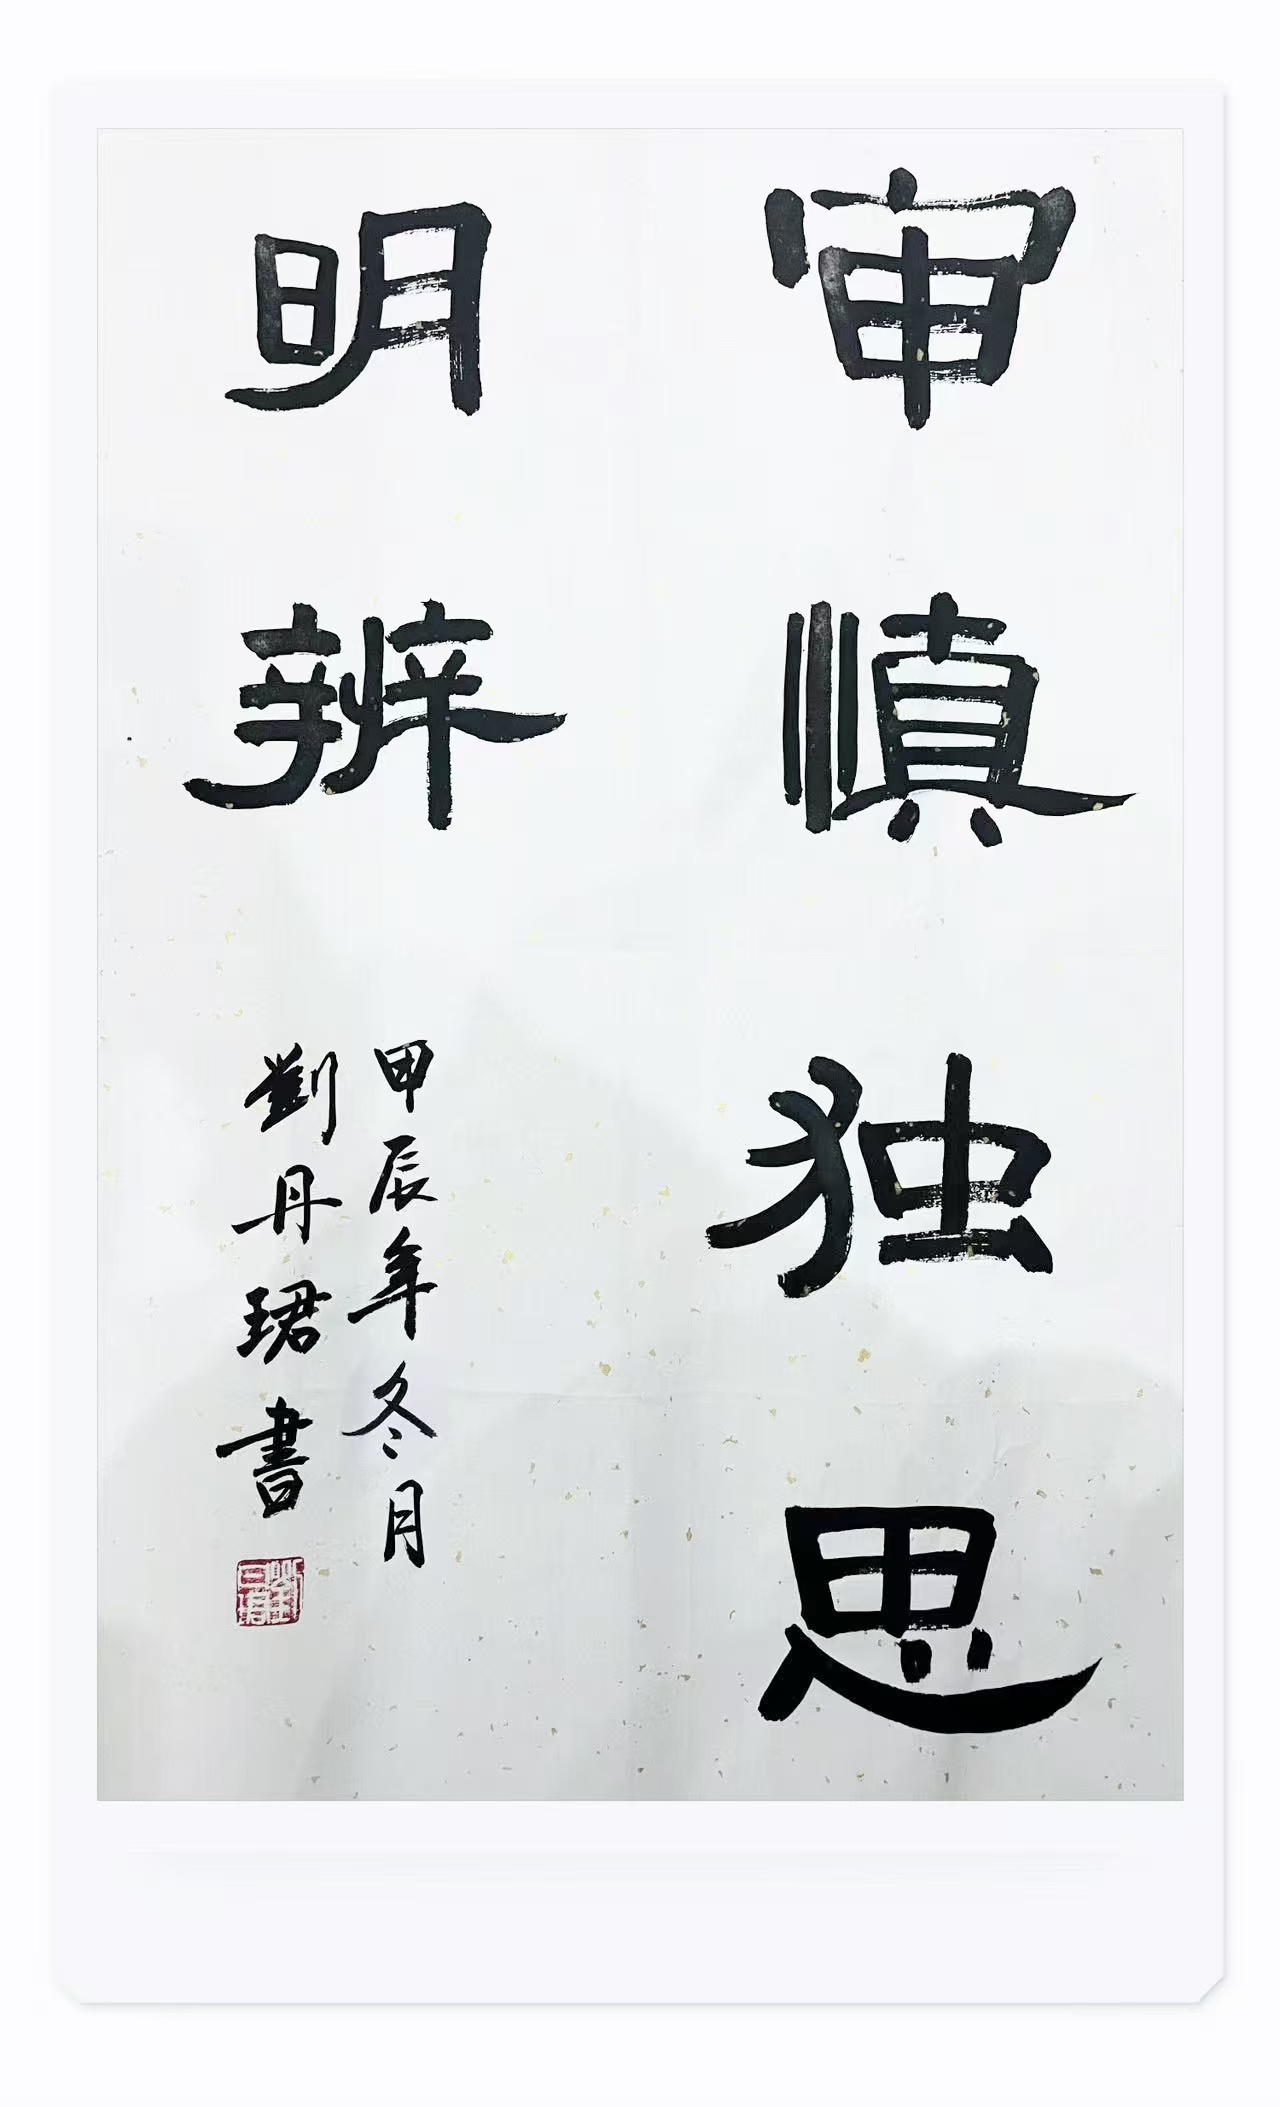 审慎独思
明辨
甲辰年冬月
劉丹珺書